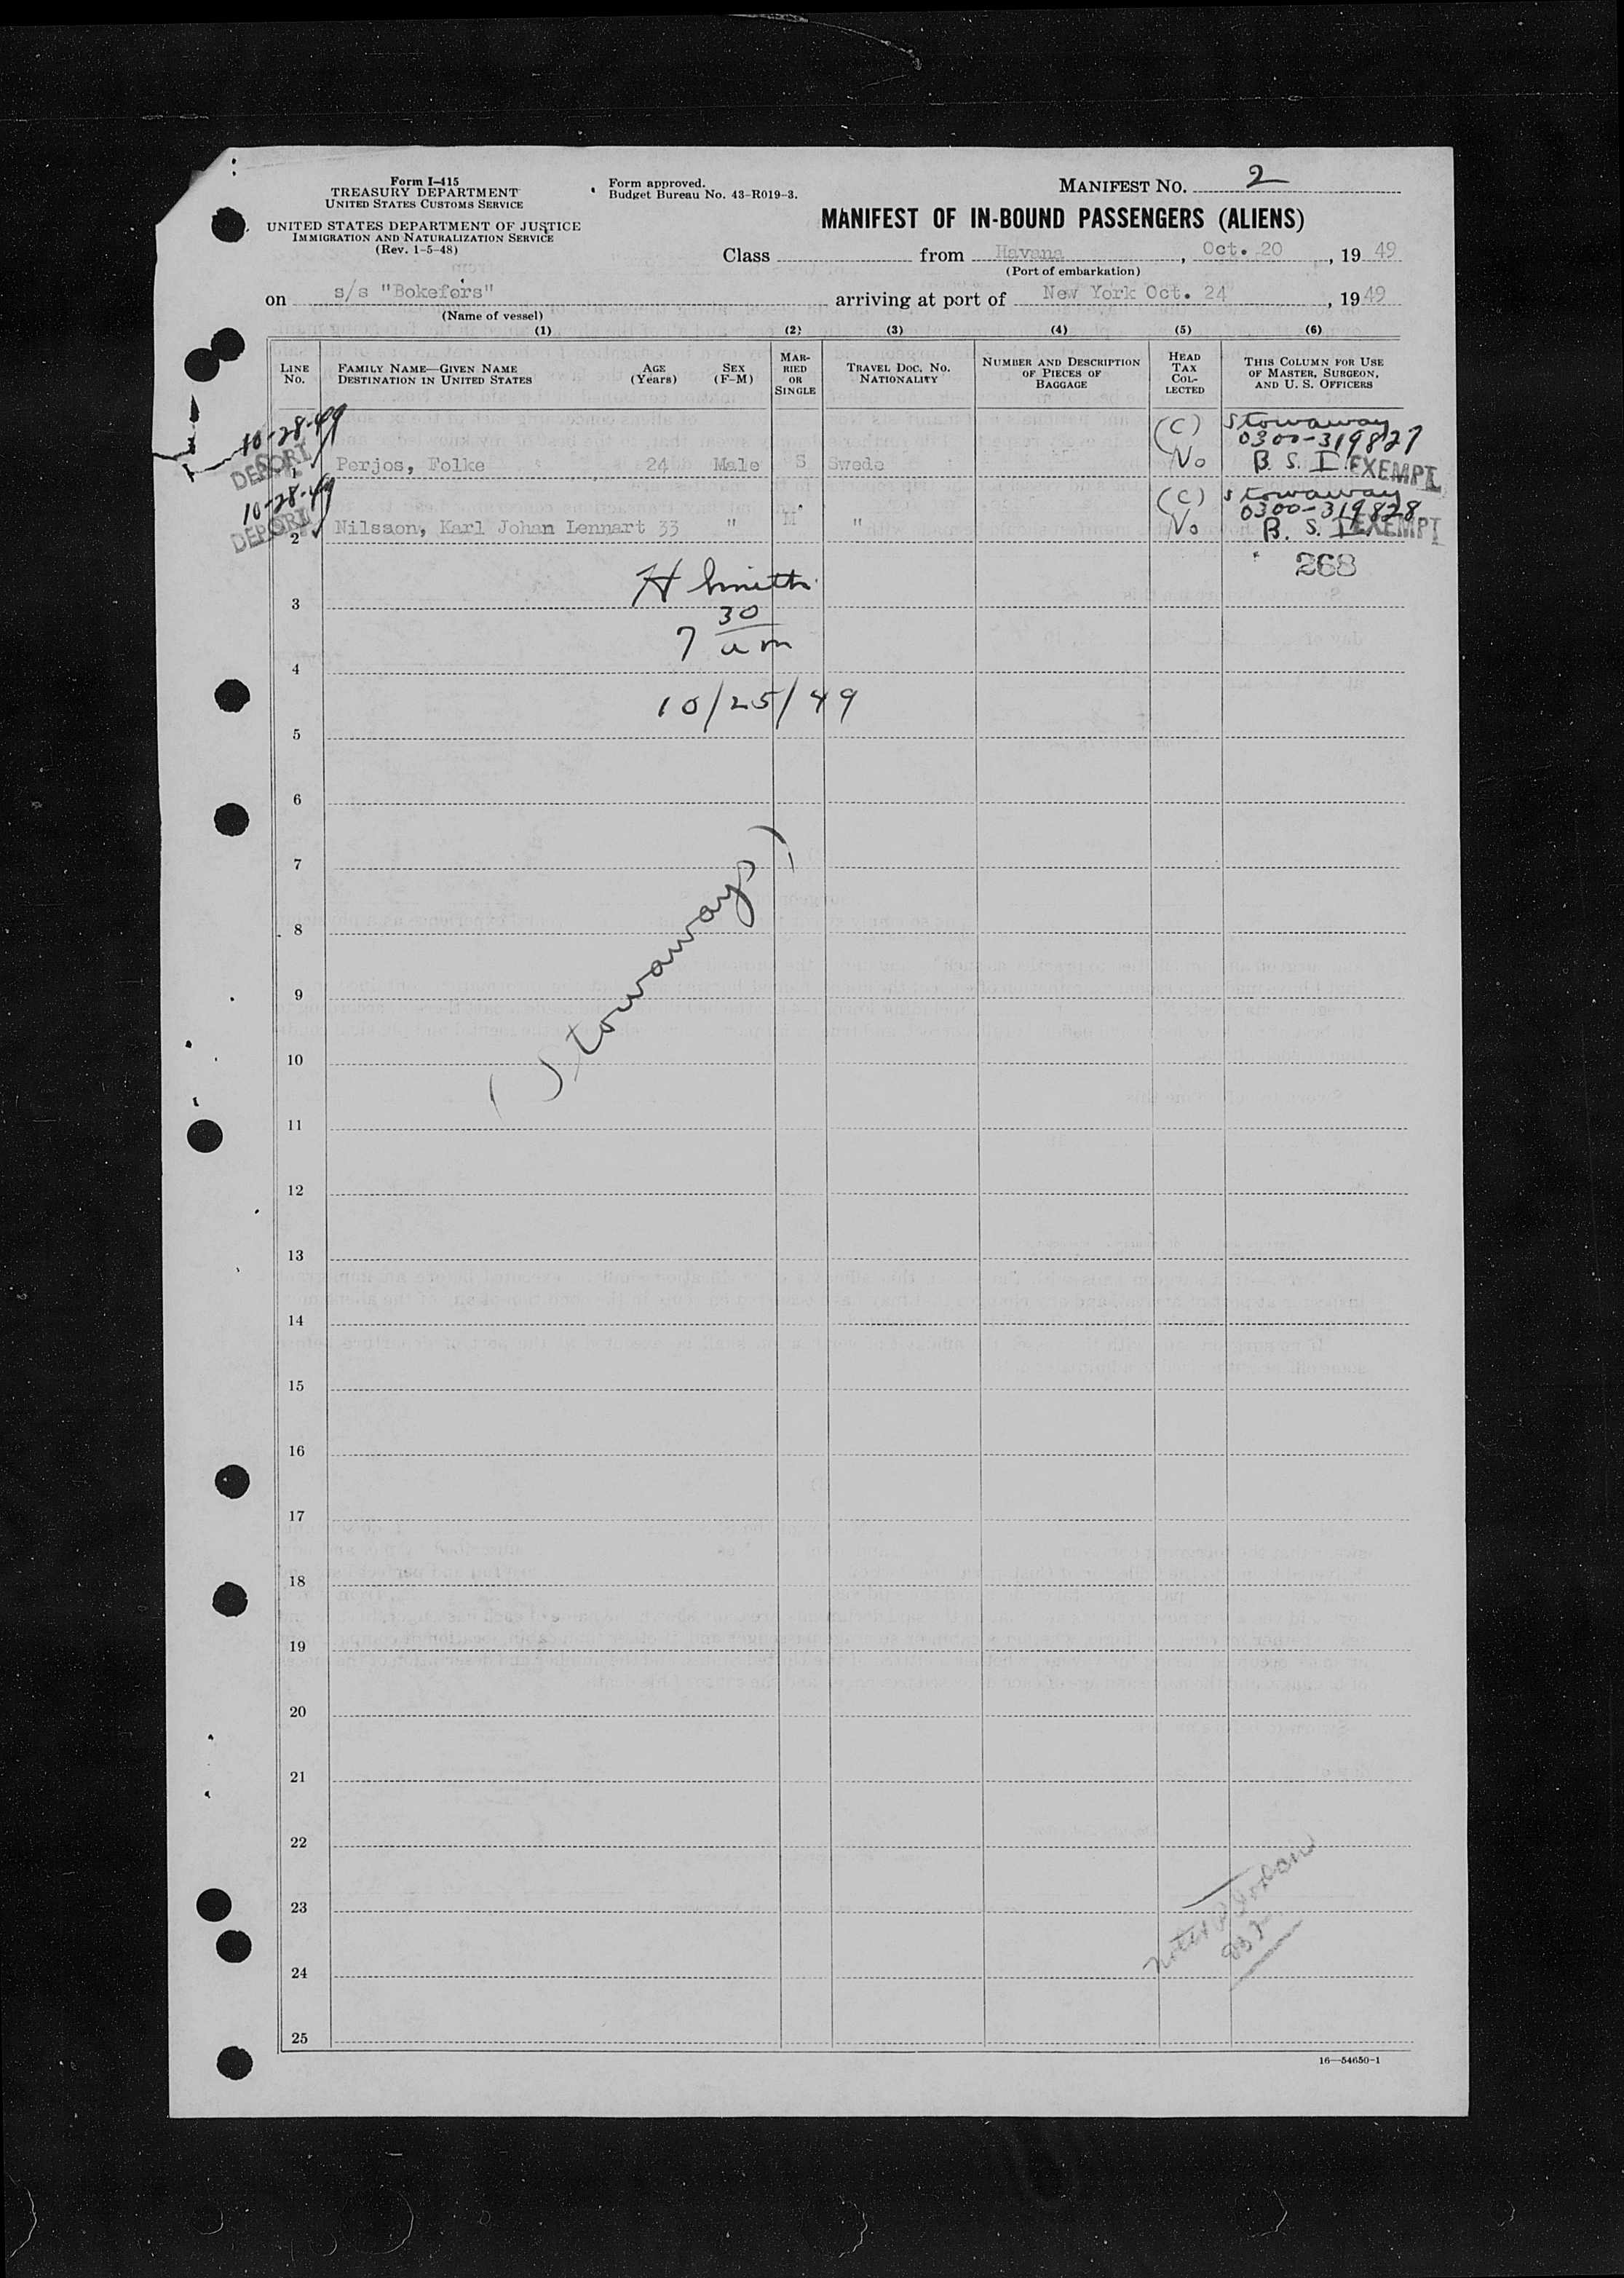 Form I-415
TREASURY DEPARTMENT
UNITED STATES CUSTOMS SERVICE
UNITED STATES DEPARTMENT OF JUSTICE
IMMIGRATION AND NATURALIZATION SERVICE
(Rev. 1-5-48)
Form approved.
Budget Bureau No. 43-R019-3.
MANIFEST NO. 2
MANIFEST OF IN-BOUND PASSENGERS (ALIENS)
Class from Havana, Oct. 20, 1949
(Port of embarkation)
on s/s "Bokefors" arriving at port of New York Oct. 24, 1949
(Name of vessel)
(1) (2) (3) (4) (5) (6)
LINE NO.
FAMILY NAME—GIVEN NAME
DESTINATION IN UNITED STATES
AGE (Years)
SEX (F-M)
MARRIED OR SINGLE
TRAVEL DOC. NO.
NATIONALITY
NUMBER AND DESCRIPTION OF PIECES OF BAGGAGE
HEAD TAX COLLECTED
THIS COLUMN FOR USE OF MASTER, SURGEON, AND U. S. OFFICERS
10-28-49
(C) Stowaway
0300-319827
DEPORT 1 Perjos, Folke 24 Male S Swede No B. S. I. EXEMPT
10-28-49
(C) Stowaway
0300-319828
DEPORT 2 Nilsson, Karl Johan Lennart 33 " M " No B. S. I. EXEMPT
268
H Smith
3
7 30 am
4
10/25/49
5
6
7
(Stowaways)
8
9
10
11
12
13
14
15
16
17
18
19
20
21
22
23
24
25
16—54650-1